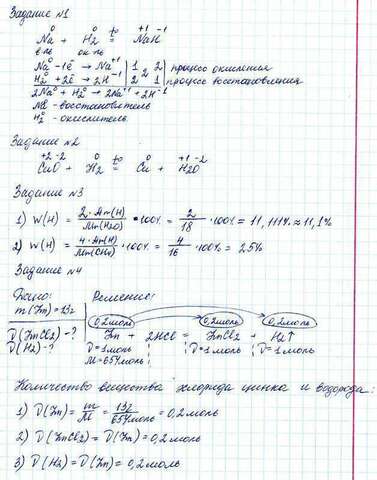 Задание №1
0 0 t° +1 -1
Na + H2 = NaH
в-ль ок-ль
Na⁰ - 1ē → Na⁺¹ | 1 | 2 | 2 | процесс окисления
H2⁰ + 2ē → 2H⁻¹ | 2 | 1 | процесс восстановления
2Na⁰ + H2⁰ → 2Na⁺¹ + 2H⁻¹
Na⁰ - восстановитель
H2⁰ - окислитель
Задание №2
+2 -2 0 t° 0 +1 -2
CuO + H2 = Cu + H2O
Задание №3
1) W(H) = 2·Ar(H)/Mr(H2O) · 100% = 2/18 · 100% = 11,111% ≈ 11,1%
2) W(H) = 4·Ar(H)/Mr(CH4) · 100% = 4/16 · 100% = 25%
Задание №4
Дано: Решение:
m(Zn) = 13г
0,2моль 0,2моль 0,2моль
ν(ZnCl2) - ? Zn + 2HCl = ZnCl2 + H2↑
ν(H2) - ? ν=1моль ν=1моль ν=1моль
M=65г/моль
Количество вещества хлорида цинка и водорода:
1) ν(Zn) = m/M = 13г/65г/моль = 0,2моль
2) ν(ZnCl2) = ν(Zn) = 0,2моль
3) ν(H2) = ν(Zn) = 0,2моль